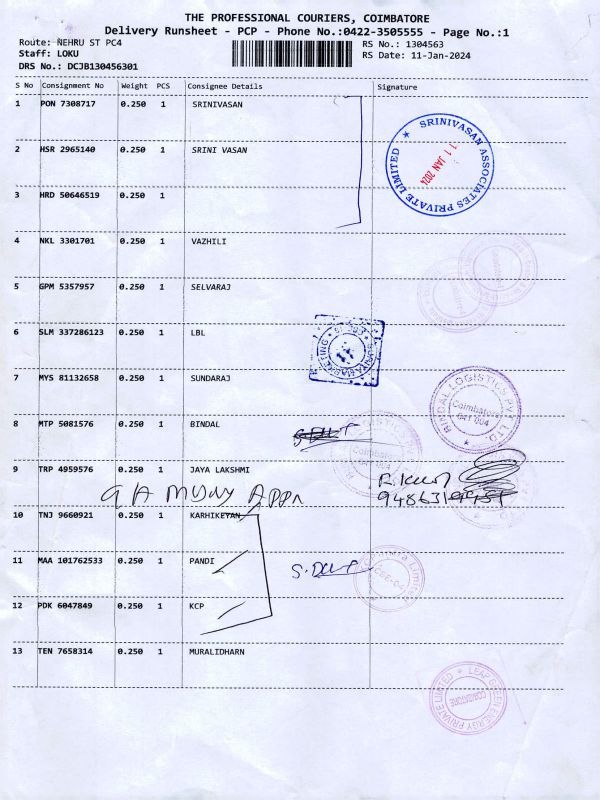 THE PROFESSIONAL COURIERS, COIMBATORE
Delivery Runsheet - PCP - Phone No.:0422-3505555 - Page No.:1
Route: NEHRU ST PC4 RS No.: 1304563
Staff: LOKU RS Date: 11-Jan-2024
DRS No.: DCJB130456301
S No Consignment No Weight PCS Consignee Details Signature
1 PON 7308717 0.250 1 SRINIVASAN
SRINIVASAN ASSOCIATES PRIVATE LIMITED ★
11 JAN 2024
2 HSR 2965140 0.250 1 SRINI VASAN
3 HRD 50646519 0.250 1
4 NKL 3301701 0.250 1 VAZHILI
5 GPM 5357957 0.250 1 SELVARAJ
6 SLM 337286123 0.250 1 LBL
7 MYS 81132658 0.250 1 SUNDARAJ
BINDAL LOGISTICS PVT. LTD. ★
Coimbatore
641 004
8 MTP 5081576 0.250 1 BINDAL
Coimbatore
9 TRP 4959576 0.250 1 JAYA LAKSHMI
10 TNJ 9660921 0.250 1 KARHIKEYAN
11 MAA 101762533 0.250 1 PANDI
12 PDK 6047849 0.250 1 KCP
13 TEN 7658314 0.250 1 MURALIDHARN
LEAP GREEN ENERGY PRIVATE LIMITED ★
COIMBATORE